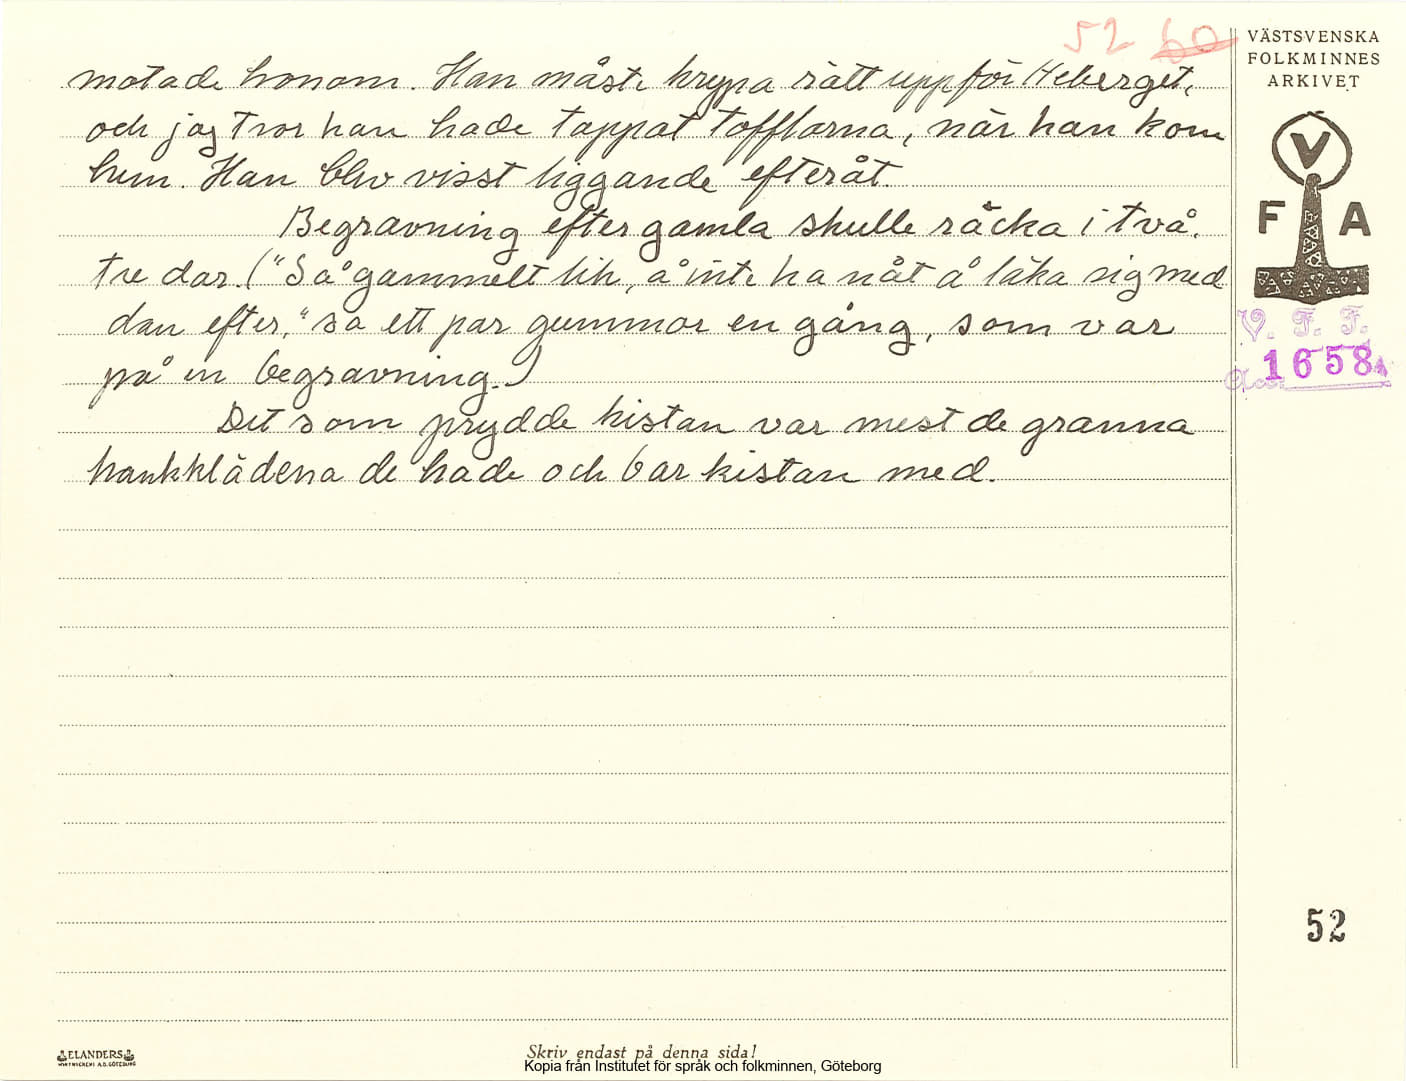 52 60
VÄSTSVENSKA
FOLKMINNES
ARKIVET
motade honom. Han måste krypa rätt uppför Heberget,
och jag tror han hade tappat tofflorna, när han kom
hem. Han blev visst liggande efteråt.
Begravning efter gamla skulle räcka i två,
tre dar. ("Så gammelt lik, å inte ha nåt å läka sig med
dan efter," sa ett par gummor en gång, som var
på en begravning.)
Det som prydde kistan var mest de granna
hankklädena de hade och bar kistan med.
V
F A
V. F. F.
Acc. 1658
52
ELANDERS
Skriv endast på denna sida!
Kopia från Institutet för språk och folkminnen, Göteborg